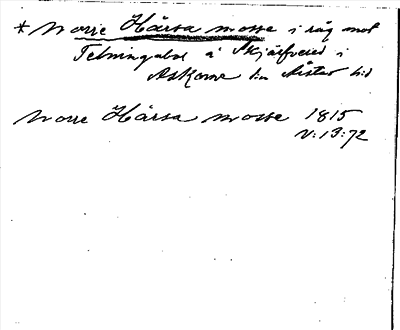 * Norre Hårsa mosse i råg mot
Telningabol å Skjärfvered i
Askome sn Årstad hd
Norre Hårsa mosse 1815
V:19:72